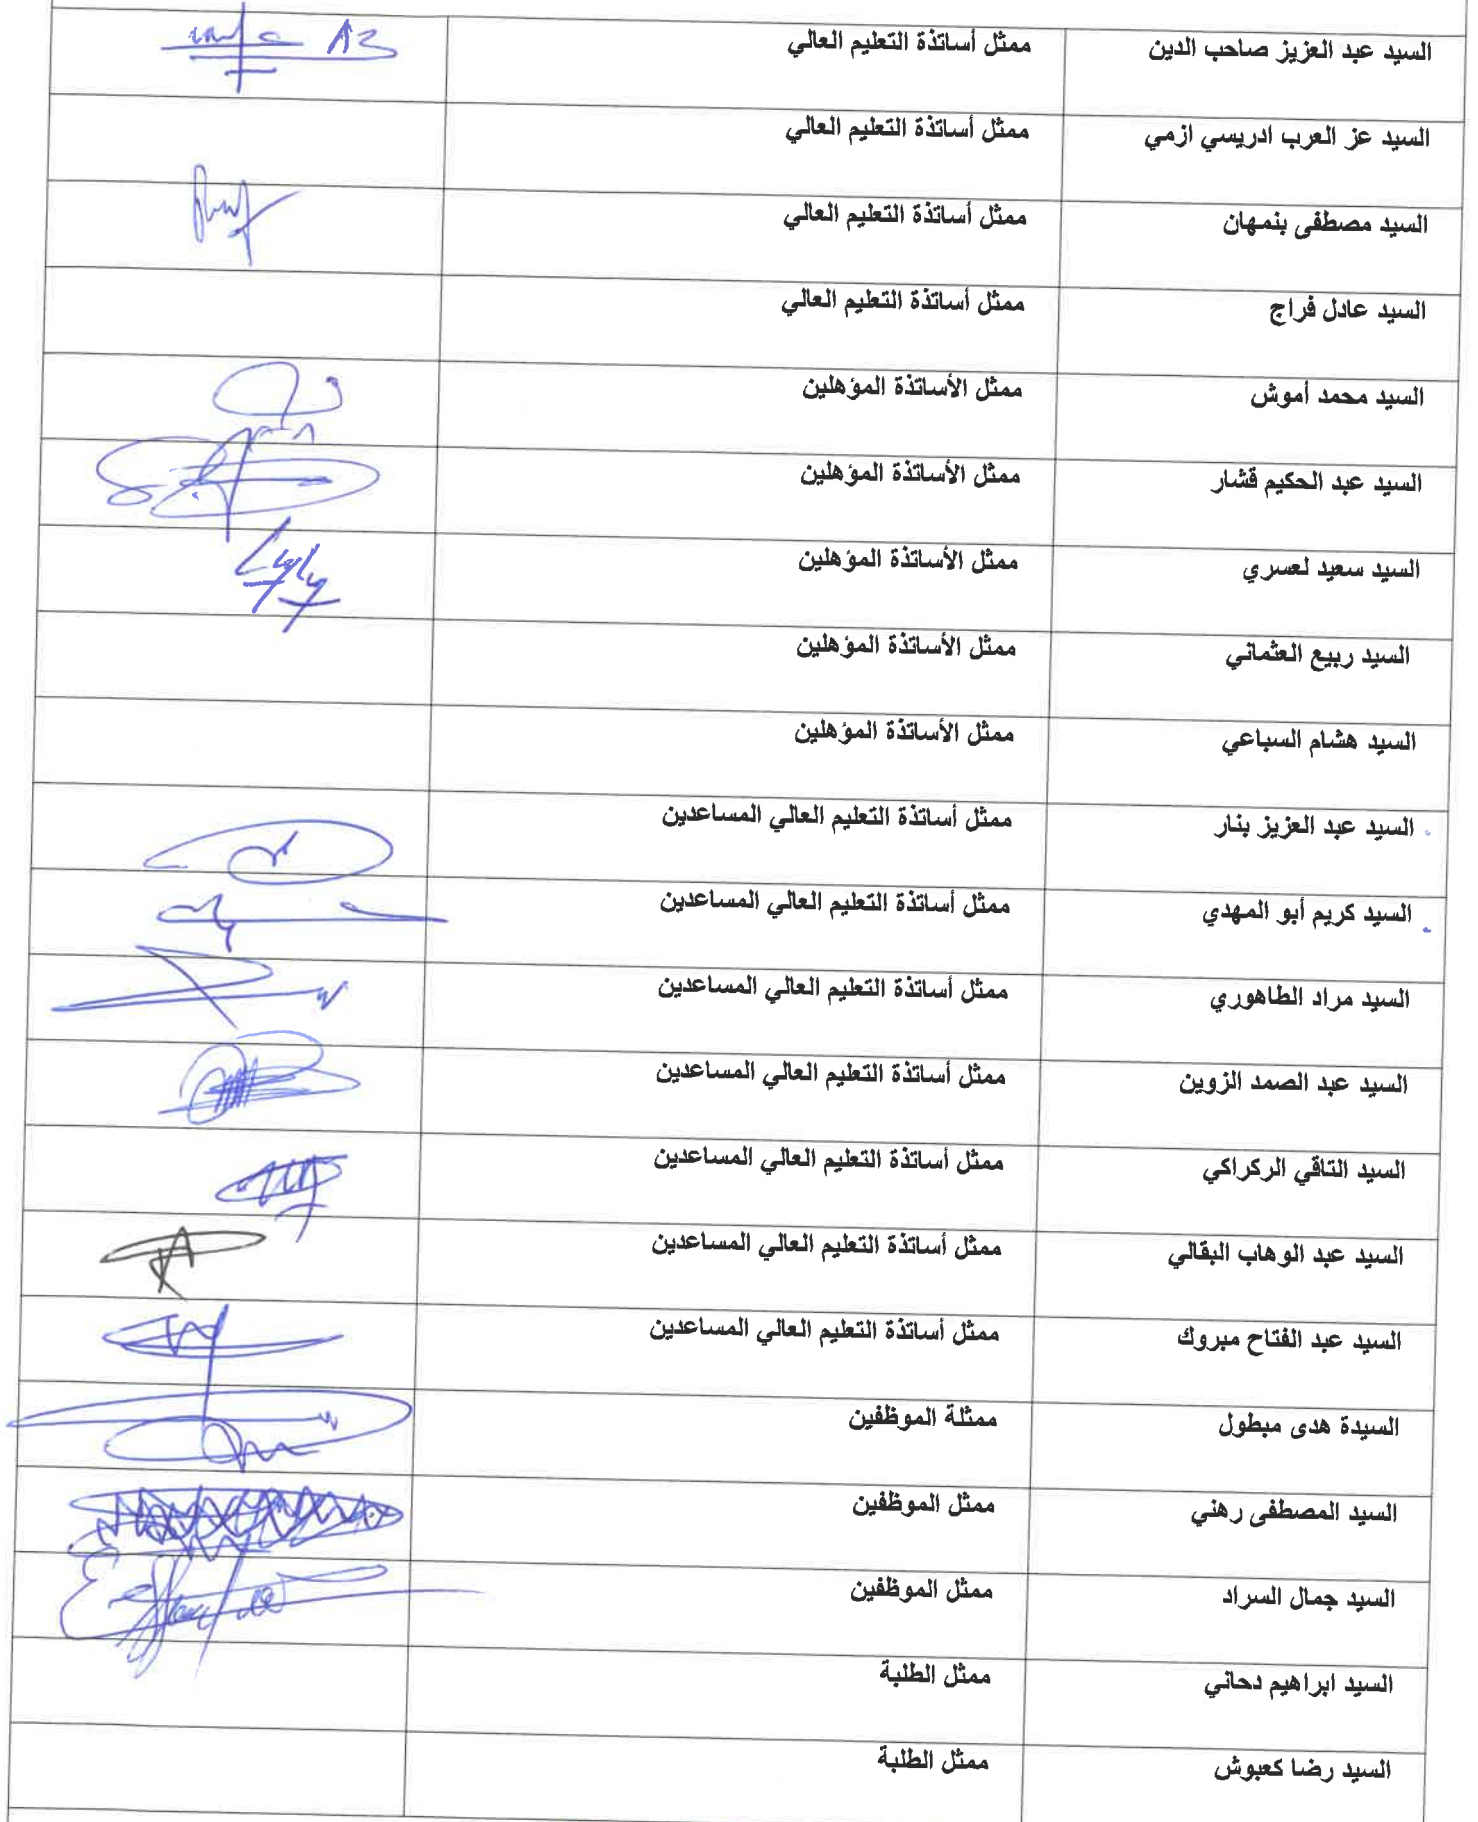 السيد عبد العزيز صاحب الدين ممثل أساتذة التعليم العالي
السيد عز العرب ادريسي ازمي ممثل أساتذة التعليم العالي
السيد مصطفى بنمهان ممثل أساتذة التعليم العالي
السيد عادل فراج ممثل أساتذة التعليم العالي
السيد محمد أموش ممثل الأساتذة المؤهلين
السيد عبد الحكيم قشار ممثل الأساتذة المؤهلين
السيد سعيد لعسري ممثل الأساتذة المؤهلين
السيد ربيع العثماني ممثل الأساتذة المؤهلين
السيد هشام السباعي ممثل الأساتذة المؤهلين
السيد عبد العزيز بنار ممثل أساتذة التعليم العالي المساعدين
السيد كريم أبو المهدي ممثل أساتذة التعليم العالي المساعدين
السيد مراد الطاهوري ممثل أساتذة التعليم العالي المساعدين
السيد عبد الصمد الزوين ممثل أساتذة التعليم العالي المساعدين
السيد التاقي الركراكي ممثل أساتذة التعليم العالي المساعدين
السيد عبد الوهاب البقالي ممثل أساتذة التعليم العالي المساعدين
السيد عبد الفتاح مبروك ممثل أساتذة التعليم العالي المساعدين
السيدة هدى مبطول ممثلة الموظفين
السيد المصطفى رهني ممثل الموظفين
السيد جمال السراد ممثل الموظفين
السيد ابراهيم دحاني ممثل الطلبة
السيد رضا كعبوش ممثل الطلبة